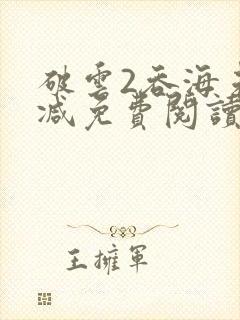 破雲2吞海未
減免費閱讀
王擁軍